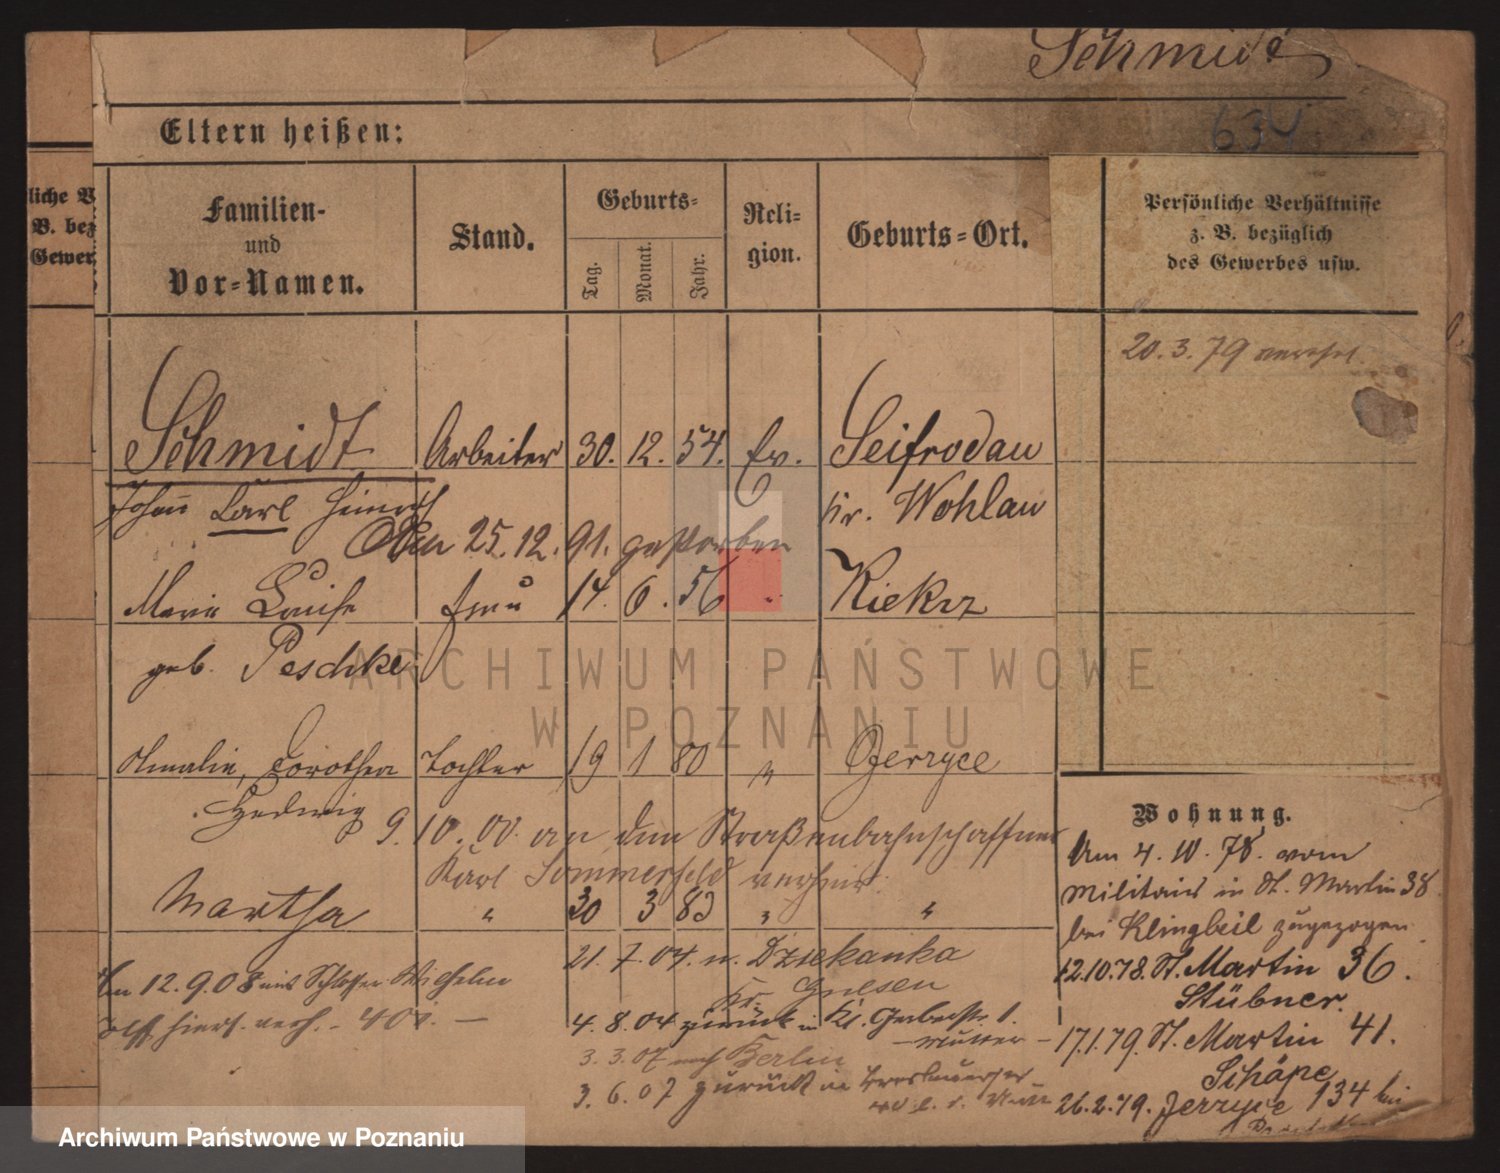 Schmidt
634
Eltern heißen:
liche V
B. bez
Gewer
Familien-
und
Vor-Namen.
Stand.
Geburts-
Tag.
Monat.
Jahr.
Reli-
gion.
Geburts-Ort.
Persönliche Verhältnisse
z. B. bezüglich
des Gewerbes usw.
20.3.79
Schmidt Arbeiter 30. 12. 54. Ev. Seifrodau
Johann Carl Heinrich Kr. Wohlau
25.12.91. gestorben
Marie Luise Frau 14. 6. 56 " Kiekrz
geb. Peschke
Amalie, Dorothea Tochter 19 1 80 " Jerzyce
Hedwig
9.10.00. an den Straßenbahnschaffner
Karl Sommerfeld verheir.
Martha " 30 3 83 " "
21.7.04. n. Dziekanka
Kr. Gnesen
4.8.04 zurück in Kl. Gerberstr. 1.
– Mutter –
3.3.07 nach Berlin
3.6.07 zurück in
Am 12.9.08 mit Schlosser Wilhelm
hiers. verh. –
Wohnung.
Am 4.10.78. vom
Militair in St. Martin 38
bei Klingbeil zugezogen
12.10.78. St. Martin 36.
Stübner.
17.1.79. St. Martin 41.
Schäpe
26.2.79. Jerzyce 134 bei
ARCHIWUM PAŃSTWOWE
W POZNANIU
Archiwum Państwowe w Poznaniu